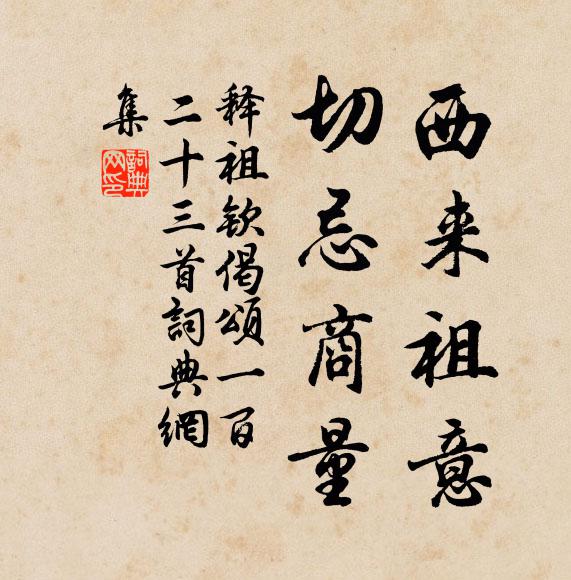 西来祖意
切忌商量
释祖钦偈颂一百
二十三首詞典網
集
詞典网印